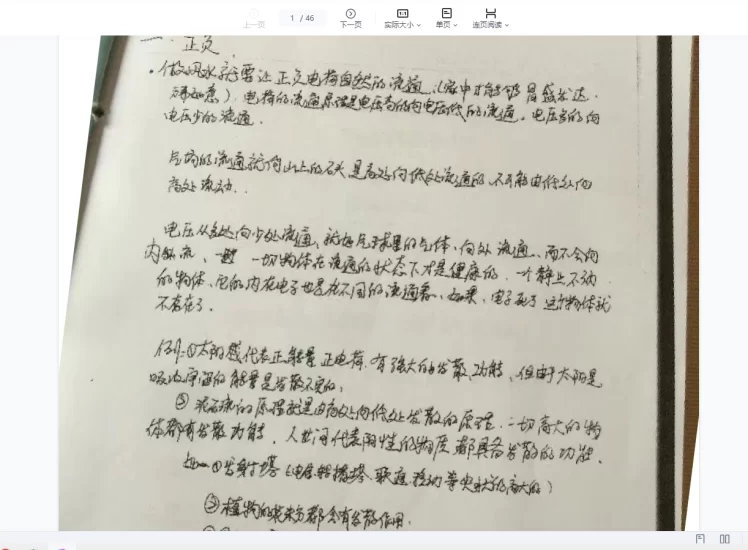 上一页
1 / 46
下一页
实际大小
单页
连页阅读
一、正负,
·做风水就要让正负电荷自然的流通,(家中才能够昌盛发达.
万事如意). 电荷的流通原理是电压高的向电压低的流通。电压多的向
电压少的流通.
气场的流通就像山上的石头是高处向低处流通的,不可能由低处向
高处流动..
电压从多处向少处流通、就好气球里的气体、向外流通、而不会向
内部流、一切物体在流通的状态下才是健康的.一个静止不动
的物体、它的内在电子也是在不同的流通着、如果、电子死了这个物体就
不存在了.
例:①太阳能代表正能量 正电荷.有强大的发散功能、但由于太阳是
吸收宇宙的能量是发散不完的.
②泥石流的原理就是由高处向低处发散的原理.一切高大的物
体都有发散功能.人世间代表阳性的物质都具备发散的功能.
如一①发射塔(电台转播塔、联通、移动等尖状的高大的)
②植物的 都会有发散作用.